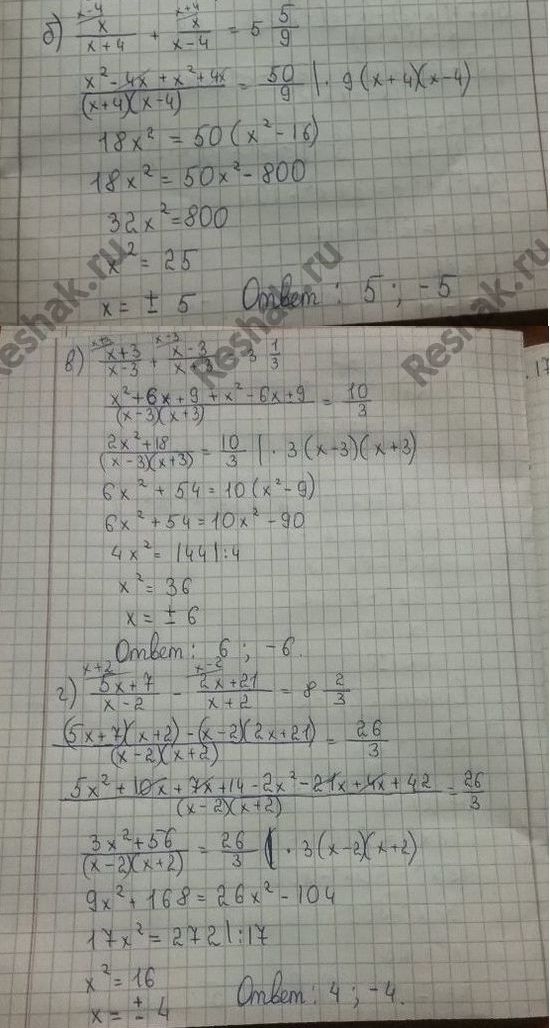 б) x-4 x/(x+4) + x+4 x/(x-4) = 5 5/9
(x² - 4x + x² + 4x)/((x+4)(x-4)) = 50/9 | · 9(x+4)(x-4)
18x² = 50(x² - 16)
18x² = 50x² - 800
32x² = 800
x² = 25
x = ± 5 Ответ: 5; -5
Reshak.ru
Reshak.ru
Reshak.ru
в) x+3 (x+3)/(x-3) + x-3 (x-3)/(x+3) = 3 1/3
(x² + 6x + 9 + x² - 6x + 9)/((x-3)(x+3)) = 10/3
(2x² + 18)/((x-3)(x+3)) = 10/3 | · 3(x-3)(x+3)
6x² + 54 = 10(x² - 9)
6x² + 54 = 10x² - 90
4x² = 144 |:4
x² = 36
x = ± 6
Ответ: 6; -6.
г) x+2 (5x+7)/(x-2) - x-2 (2x+21)/(x+2) = 8 2/3
((5x+7)(x+2) - (x-2)(2x+21))/((x-2)(x+2)) = 26/3
(5x² + 10x + 7x + 14 - 2x² - 21x + 4x + 42)/((x-2)(x+2)) = 26/3
(3x² + 56)/((x-2)(x+2)) = 26/3 | · 3(x-2)(x+2)
9x² + 168 = 26x² - 104
17x² = 272 |:17
x² = 16
x = ± 4 Ответ: 4; -4.